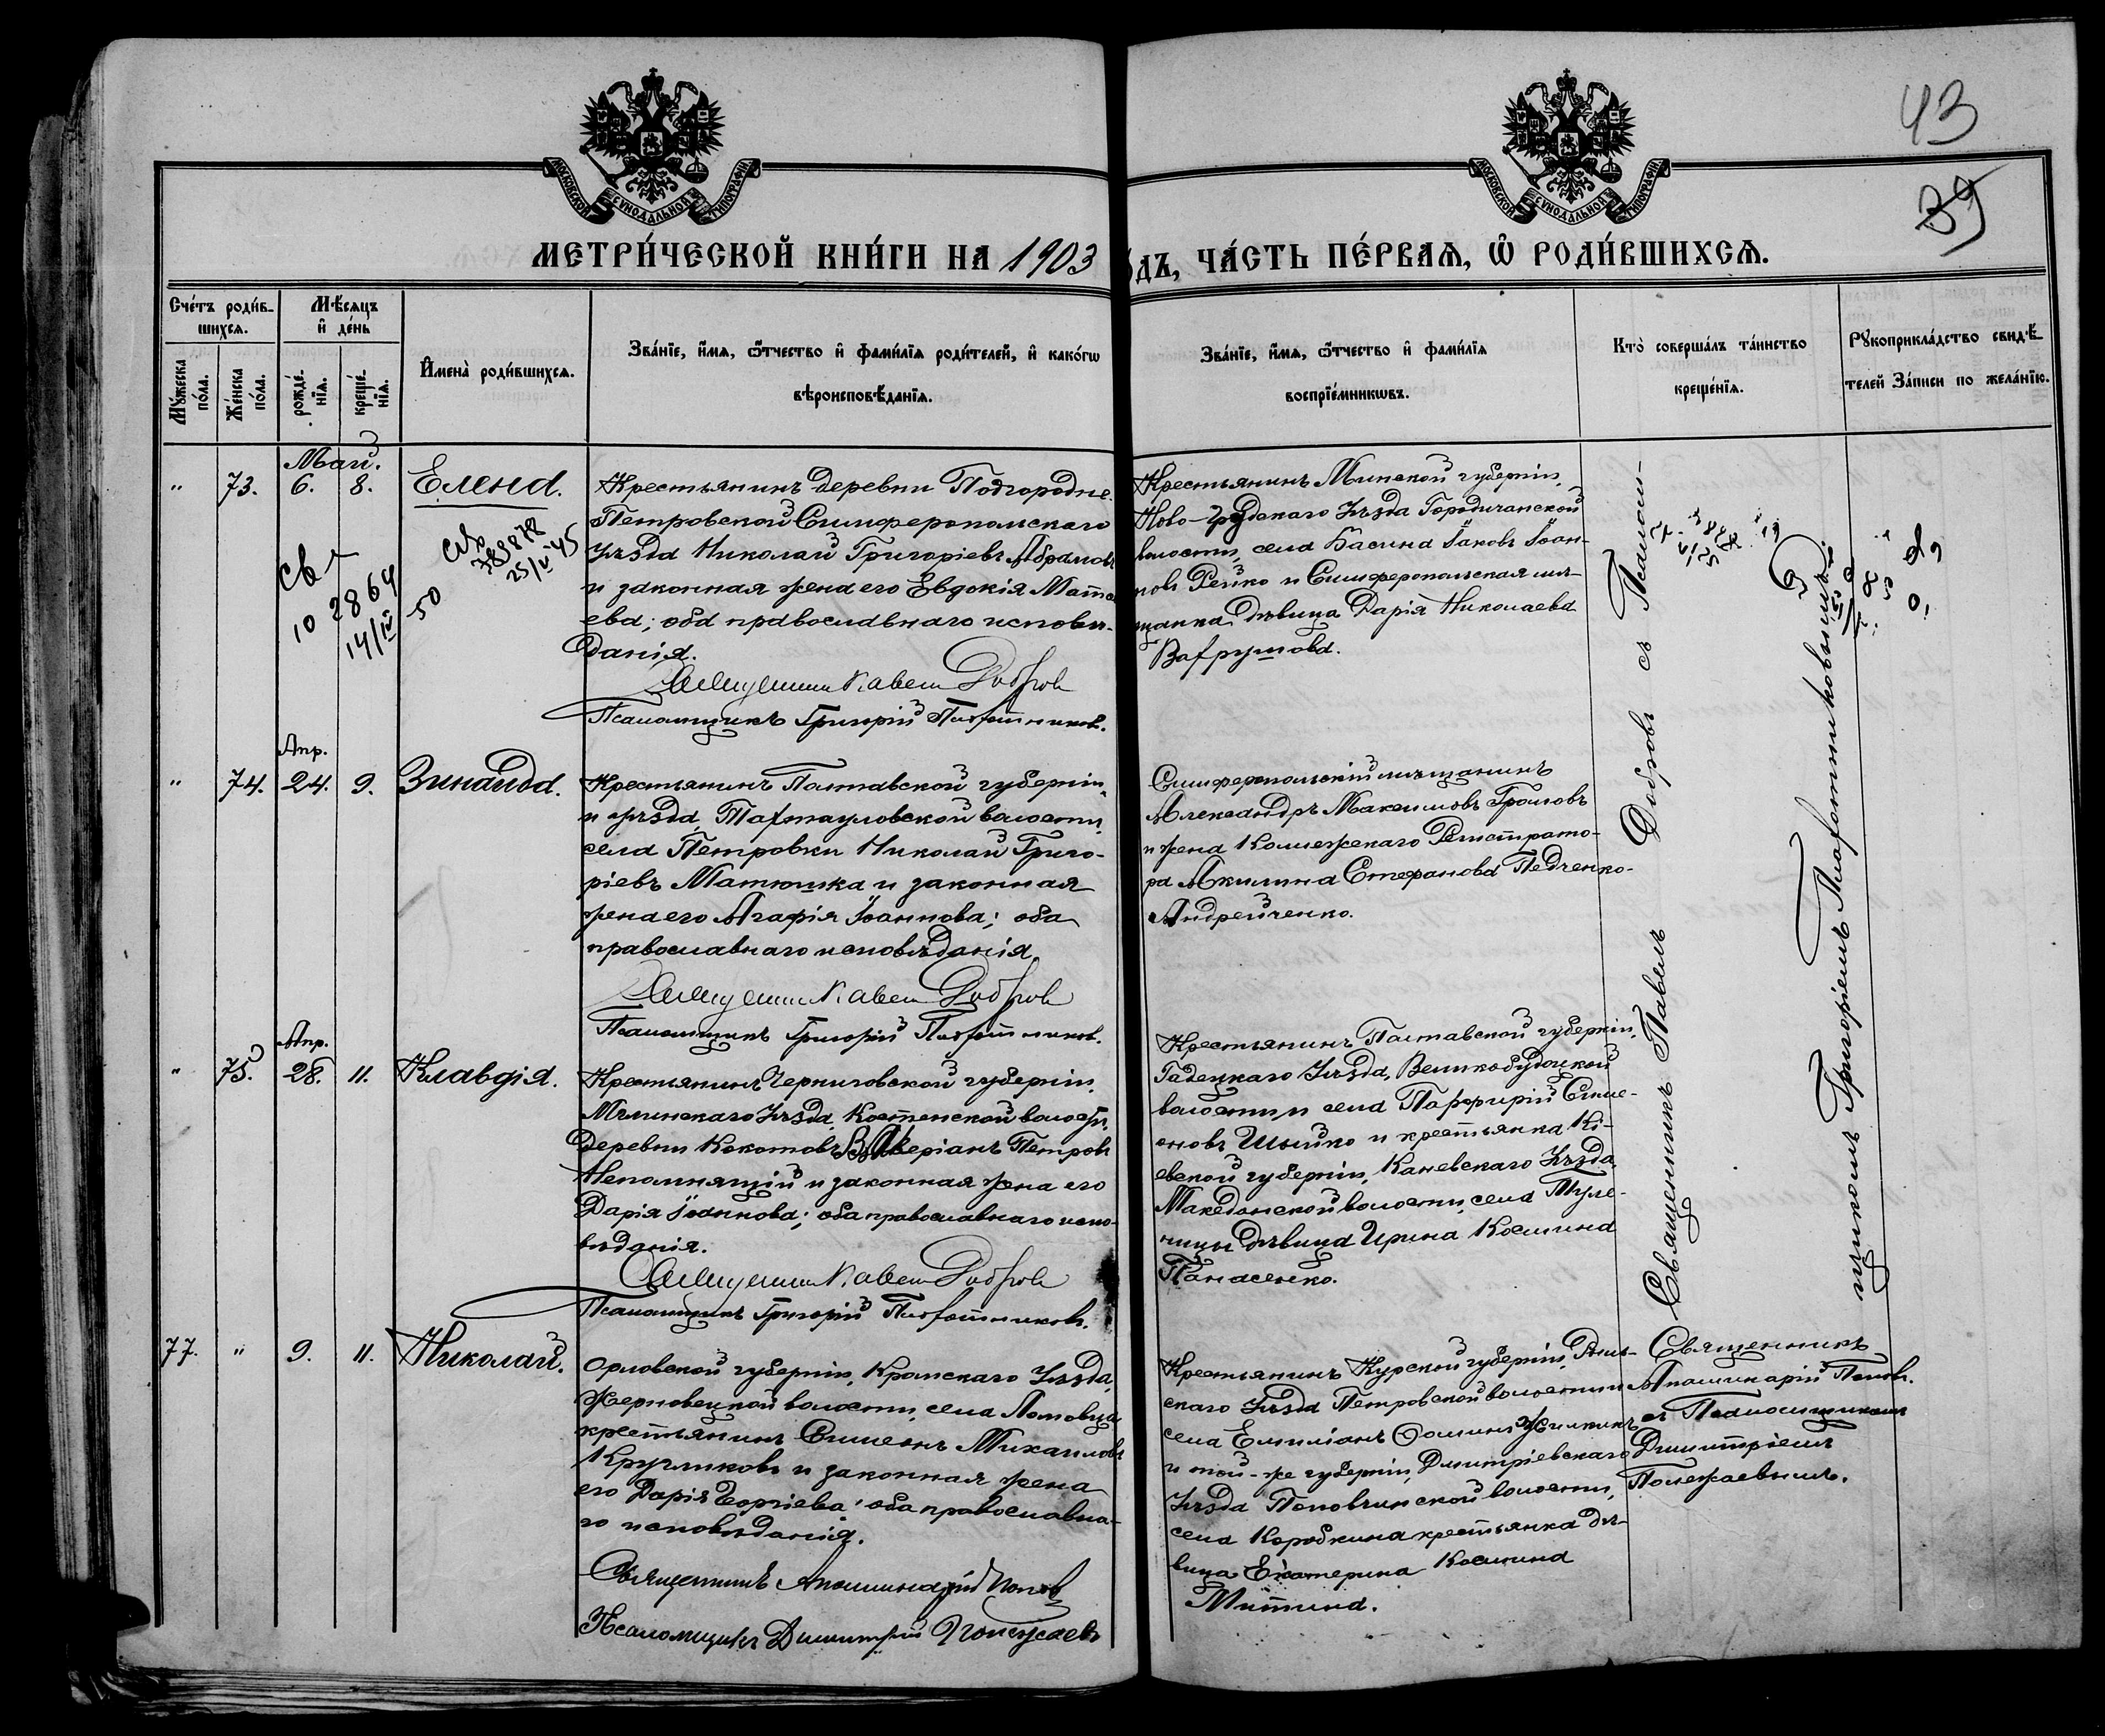 43
39
МОСКОВСКОЙ СѴНОДАЛЬНОЙ ТИПОГРАФІИ
МОСКОВСКОЙ СѴНОДАЛЬНОЙ ТИПОГРАФІИ
МЕТРИ́ЧЕСКОЙ КНИ́ГИ НА 1903
ДЪ, ЧА́СТЬ ПЕ́РВАѦ, Ѡ҆ РОДИ́ВШИХСѦ.
Сче́тъ роди́в-
шихсѧ.
Мѣ́сѧцъ
и҆ де́нь
Мꙋ́жеска по́ла.
Же́нска по́ла.
рожде́-
нїѧ.
креще́-
нїѧ.
И҆мена̀ роди́вшихсѧ.
Зва́нїе, и҆́мѧ, ѻ҆́тчество и҆ фами́лїѧ роди́телей, и҆ како́гѡ
вѣроисповѣ́данїѧ.
Зва́нїе, и҆́мѧ, ѻ҆́тчество и҆ фами́лїѧ
воспрїе́мникѡвъ.
Кто̀ соверша́лъ та́инство
креще́нїѧ.
Рꙋкоприкла́дство свидѣ́-
телей за́писи по жела́нїю.
Май.
" 73. 6. 8. Елена.
Крестьянинъ деревни Подгородне-
Петровской Симферопольскаго
уѣзда Николай Григоріевъ Абрамовъ
и законная жена его Евдокія Матѳ
ева; оба православнаго исповѣ-
данія.
Священникъ Павелъ Добров
Псаломщикъ Григорій Плаѳотников.
Св
10 2864
14/IV 50
Св
785878
25/V 45
Крестьянинъ Минской губерніи,
Ново-Грудскаго уѣзда Городичанской
волости, села Басина Іаковъ Іоан-
новъ Рейко и Симферопольская мѣ-
щанка дѣвица Дарія Николаева
Вахрушова.
Священникъ Павелъ Добровъ съ Псалом-
щикомъ Григоріемъ Плаѳотниковымъ.
Апр.
" 74. 24. 9. Зинаида.
Крестьянинъ Полтавской губерніи,
и уѣзда, Тахтауловской волости,
села Петровки Николай Григо-
ріевъ Матюшка и законная
жена его Агафія Іоаннова; оба
православнаго исповѣданія.
Священникъ Павелъ Добров
Псаломщикъ Григорій Плаѳотников.
Симферопольскій мѣщанинъ
Александръ Максимовъ Громовъ
и жена Коллежскаго Регистрато-
ра Акилина Стефанова Педченко-
Андрейченко.
Апр.
" 75. 28. 11. Клавдія.
Крестьянинъ Черниговской губерніи,
Мглинскаго уѣзда, Костенской волости,
деревни Кокотовъ Валеріанъ Петровъ
Непомнящій и законная жена его
Дарія Іоаннова; оба православнаго испо-
вѣданія.
Священникъ Павелъ Добров
Псаломщикъ Григорій Плаѳотниковъ.
Крестьянинъ Полтавской губерніи,
Гадецкаго уѣзда, Великобудоцкой
волости и села Парфирій Симе-
оновъ Шышко и крестьянка Кі-
евской губерніи, Каневскаго уѣзда,
Македонской волости, села Туле-
ницы дѣвица Ирина Космина
Панасенко.
77. " 9. 11. Николай.
Орловской губерніи, Кромскаго уѣзда,
Жерновецкой волости, села Ломовца
крестьянинъ Симеонъ Михаиловъ
Кругликовъ и законная жена
его Дарія Георгіева; оба православна-
го исповѣданія.
Священникъ Аполлинарій Попов
Псаломщикъ Димитрій Полежаевъ
Крестьянинъ Курской губерніи, Рыль-
скаго уѣзда Петровской волости и
села Емиліанъ Ѳоминъ Жилкинъ
и той-же губерніи, Дмитріевскаго
уѣзда Поповкинской волости,
села Коробкина крестьянка дѣ-
вица Екатерина Космина
Митина.
Священникъ
Аполлинарій Попов.
съ Псаломщикомъ
Димитріемъ
Полежаевымъ.